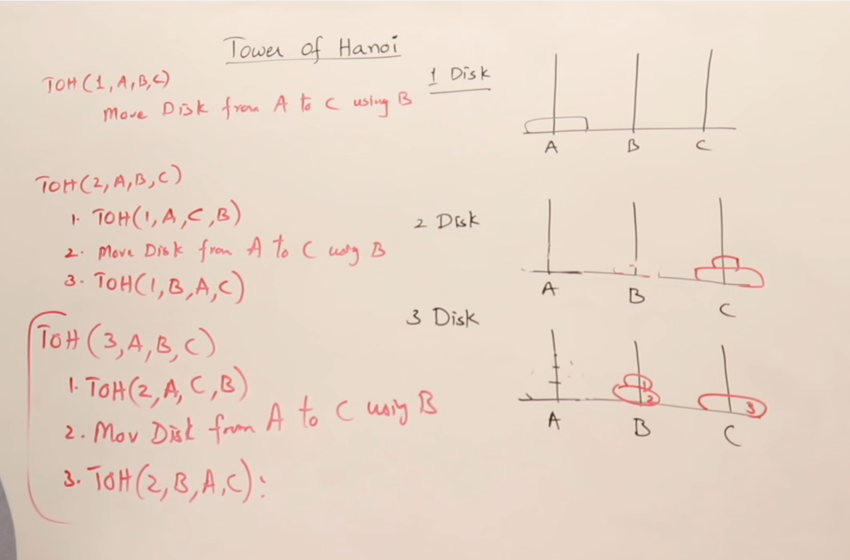 Tower of Hanoi
TOH(1,A,B,C)
Move Disk from A to C using B
1 Disk
A B C
TOH(2,A,B,C)
1. TOH(1,A,C,B)
2. Move Disk from A to C using B
3. TOH(1,B,A,C)
2 Disk
A B C
TOH(3,A,B,C)
1. TOH(2,A,C,B)
2. Mov Disk from A to C using B
3. TOH(2,B,A,C):
3 Disk
1
2 3
A B C